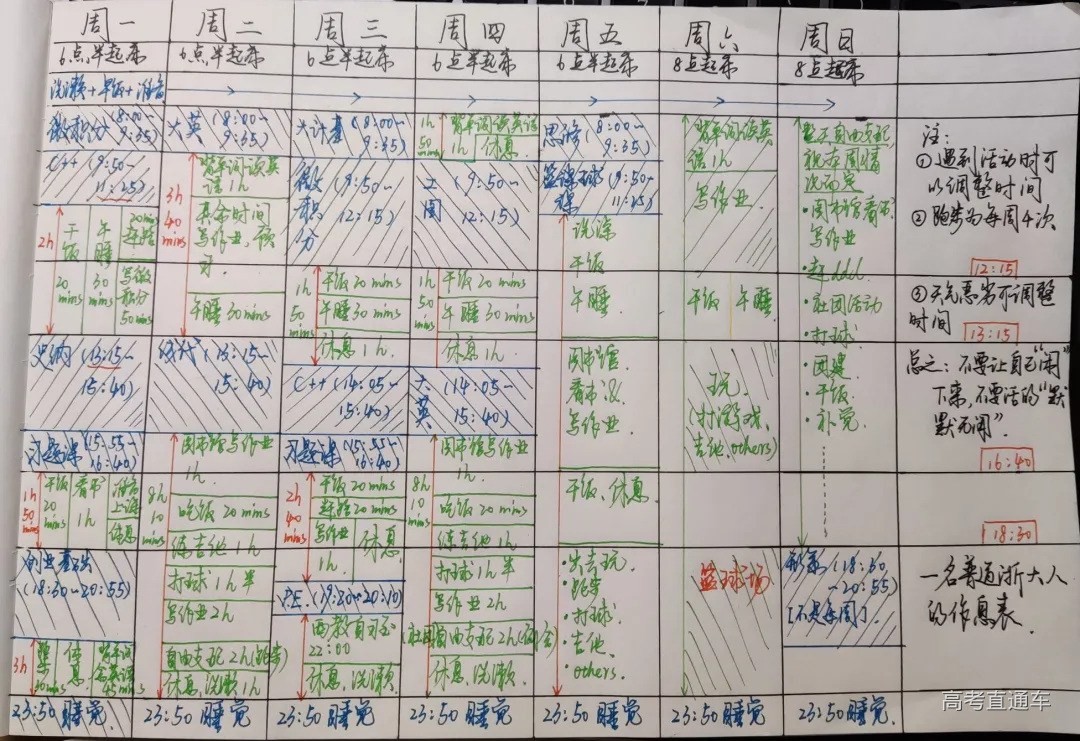 周一
周二
周三
周四
周五
周六
周日
6点半起床
6点半起床
6点半起床
6点半起床
6点半起床
8点起床
8点起床
洗漱+早饭+准备
微积分(8:00~
9:35)
C++(9:50~
11:25)
2h
干饭
20
mins
午睡
30
mins
20mins
写微
积分
50mins
史纲(13:15~
15:40)
习题课(15:55~
16:40)
1h
50
mins
干饭
20
mins
看书
1h
准备
上课
休息
创业基础
(18:30~20:55)
3h
跑步
休息
背单词
23:50睡觉
大英(8:00~
9:35)
3h
40
mins
背单词读英
语1h
其余时间
写作业,预
习.
午睡30mins
线代(13:15~
15:40)
8h
10
mins
图书馆写作业
1h.
吃饭20mins
练吉他1h
打球1h半
写作业2h
自由支配2h(跑步)
休息,洗漱1h
23:50睡觉
大计基(8:00~
9:35)
微积分(9:50~
12:15)
1h
50
mins
干饭20mins
午睡30mins
休息1h.
C++(14:05~
15:40)
习题课(15:55~
16:40)
2h
40
mins
干饭20mins
写作业
1h.
休息
P.E.(19:20~20:10)
西教自习至
22:00
休息,洗漱.
23:50睡觉
1h
50
mins
背单词读英语
1h
休息.
工图(9:50~
12:15)
1h
50
mins
干饭20mins
午睡30mins
休息1h
大英(14:05~
15:40)
8h
10
mins
图书馆写作业
1h.
吃饭20mins
练吉他1h
打球1h半
写作业2h
自由支配2h
休息,洗漱
23:50睡觉
思修(8:00~
9:35)
篮球课(9:50~
11:25)
洗澡
干饭
午睡
图书馆
看书&
写作业
干饭、休息
出去玩.
·跑步
·打球
·吉他
·others.
23:50睡觉
背单词读英
语1h
写作业.
干饭
午睡
玩.
(打游戏、
吉他,others)
篮球场
23:50睡觉
自由支配
视本周情
况而定
·图书馆看书
写作业
·赶ddl
·社团活动
·打球.
·团建.
·干饭.
·补觉.
形策(18:30
~20:55)
[不是每周]
23:50睡觉.
注:
①遇到活动时可
以调整时间
②跑步为每周4次
12:15
③天气恶劣可调整
时间
13:15
总之:不要让自己“闲”
下来,不要活的“默
默无闻”.
16:40
18:30
一名普通浙大人
的作息表.
高考直通车